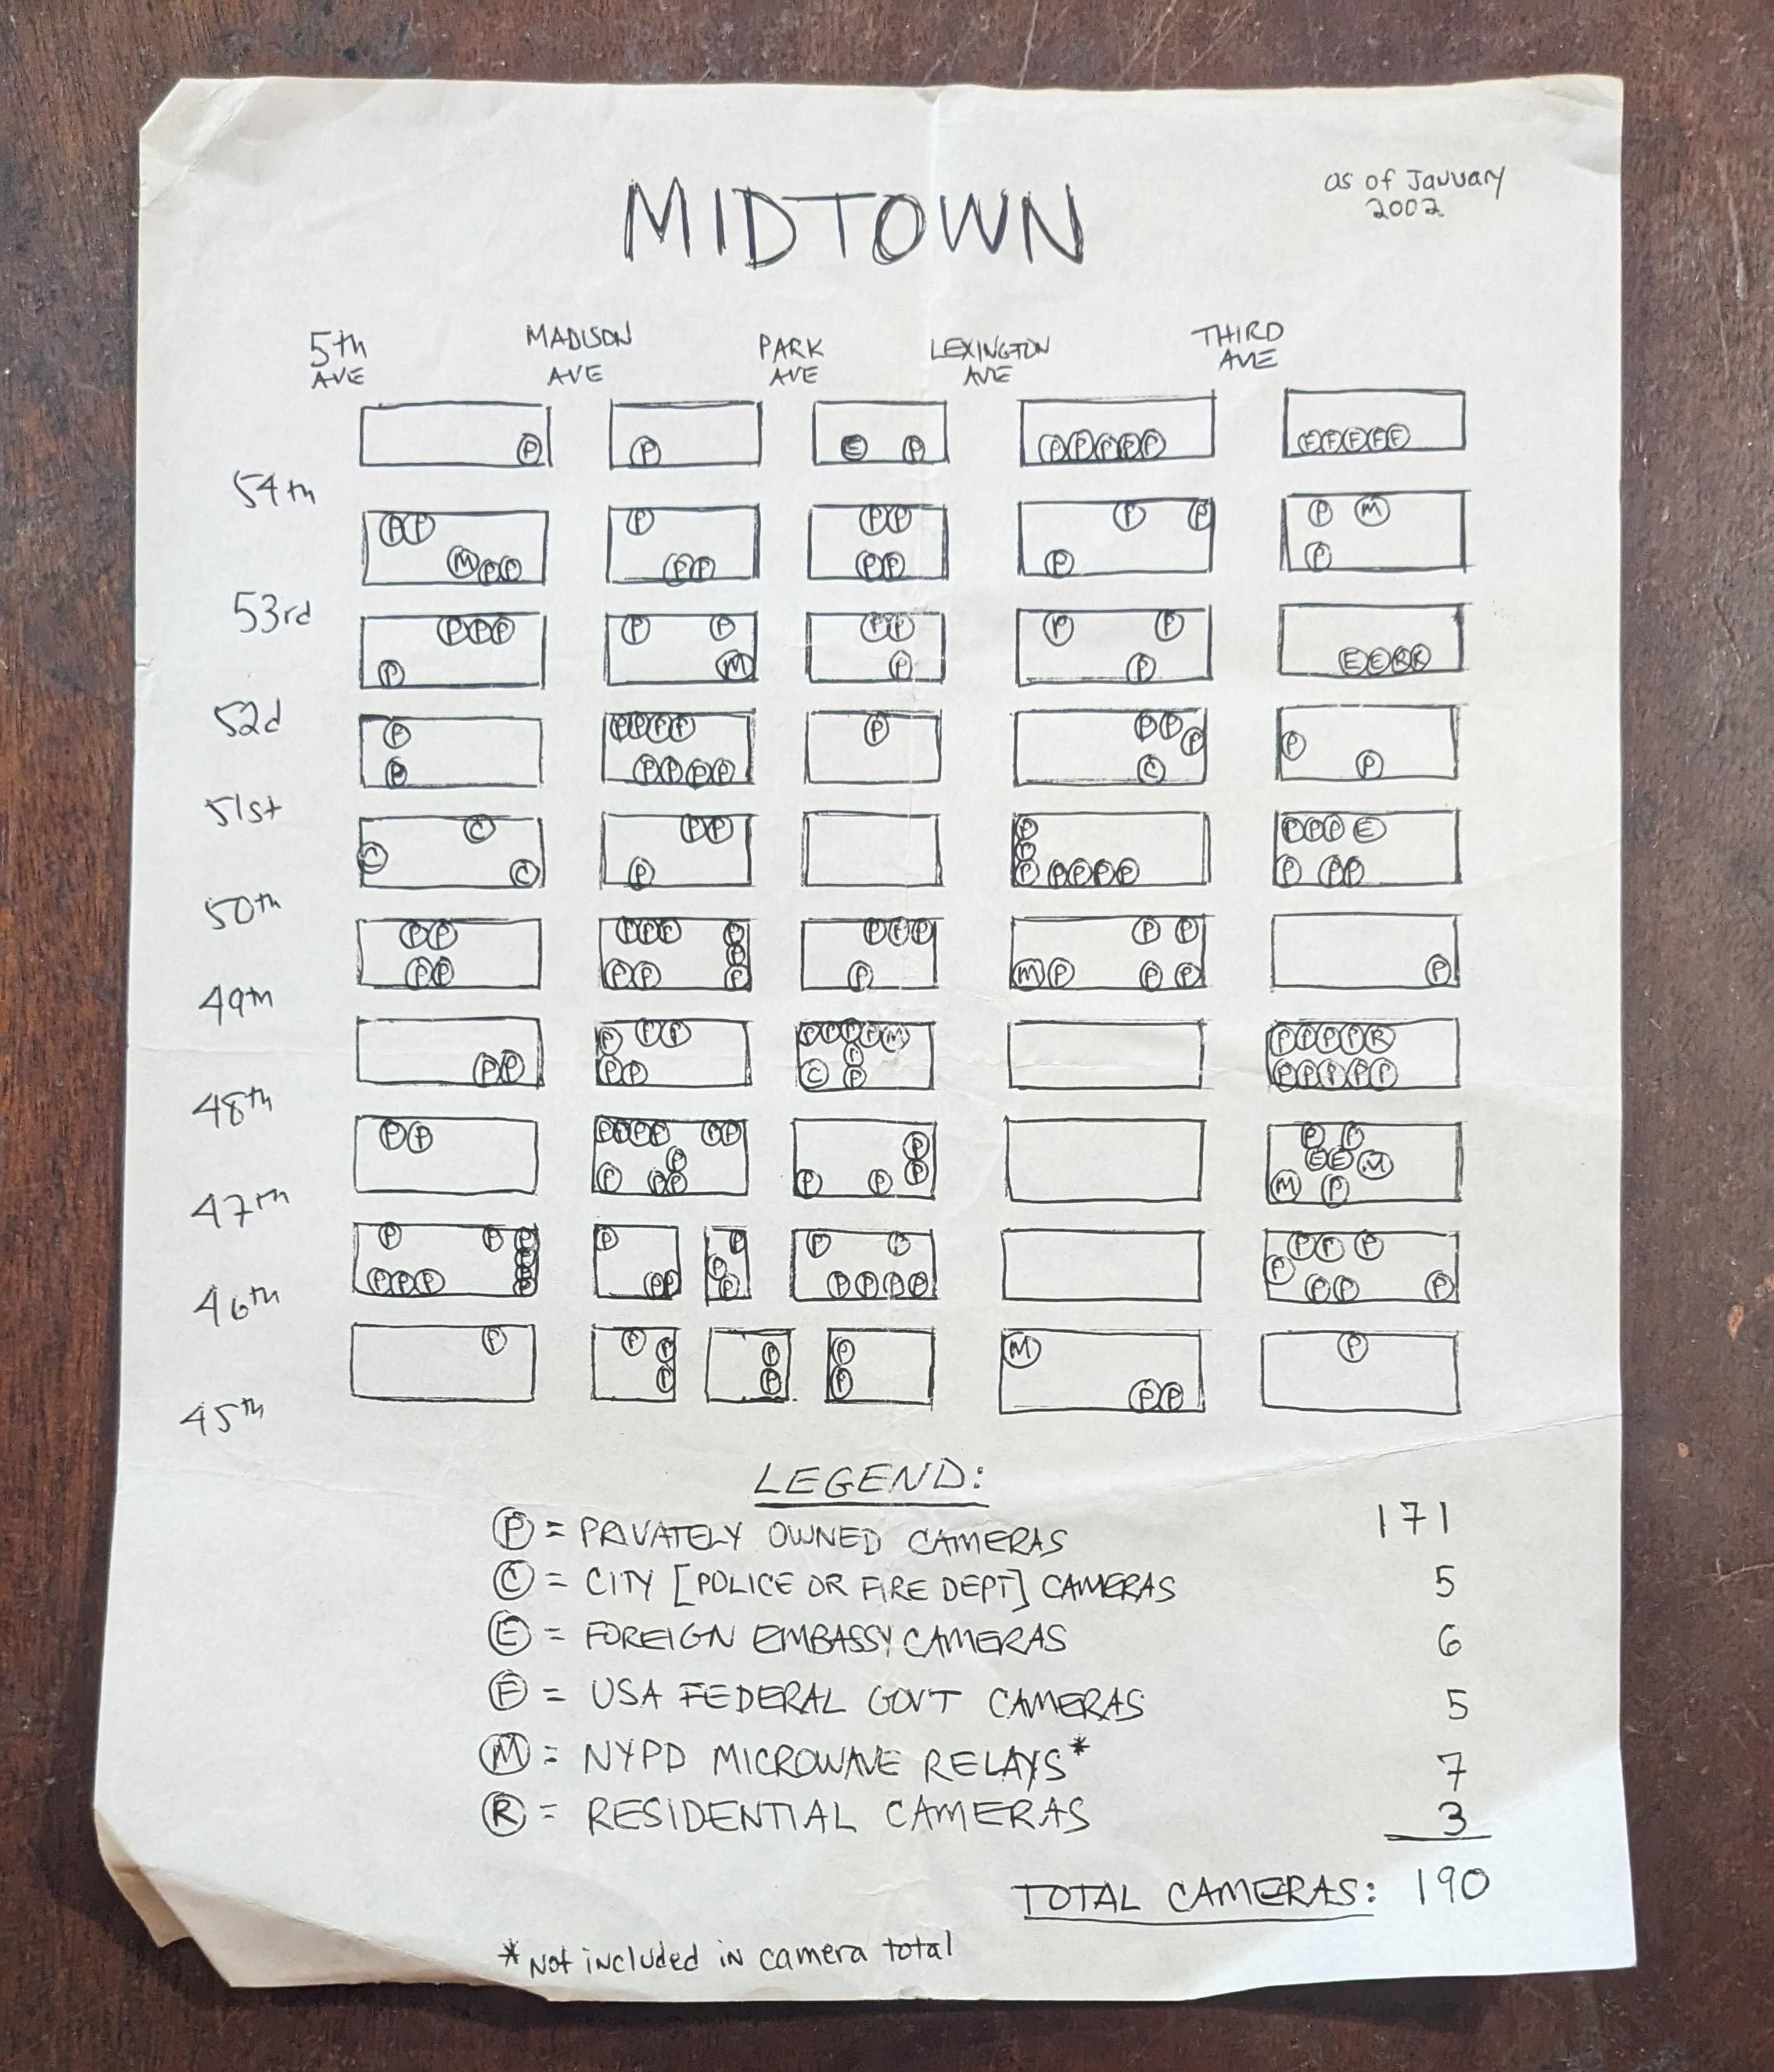 MIDTOWN
as of January
2002
5th
AVE
MADISON
AVE
PARK
AVE
LEXINGTON
AVE
THIRD
AVE
P
P
E P
P P P P P
F F F F F
54th
P P
M P P
P
P P
P P
P P
P P
P
P M
P
53rd
P P P
P
P P
M
P P
P
P P
P
E E R R
52d
P
P
P P P P
P P P P
P
P P P
C
P
P
51st
C
C C
P P
P
P
P
P P P P P
P P P E
P P P
50th
P P
P P
P P P P
P
P P P
P P P
P
P P
M P P P
P
49th
P P
P P P
P P
P P P P M
P
C P
P P P P R
P P P P P
48th
P P
P P P P P P
P
P P P
P
P
P P
P P
E E M
M P
47th
P P P
P
P
P P P P
P
P P
P
P
P
P P
P P P P
P P P
P
P P P
46th
P
P P
P
P
P
P
P
M
P P
P
45th
LEGEND:
P = PRIVATELY OWNED CAMERAS 171
C = CITY [POLICE OR FIRE DEPT] CAMERAS 5
E = FOREIGN EMBASSY CAMERAS 6
F = USA FEDERAL GOVT CAMERAS 5
M = NYPD MICROWAVE RELAYS* 7
R = RESIDENTIAL CAMERAS 3
TOTAL CAMERAS: 190
*Not included in camera total